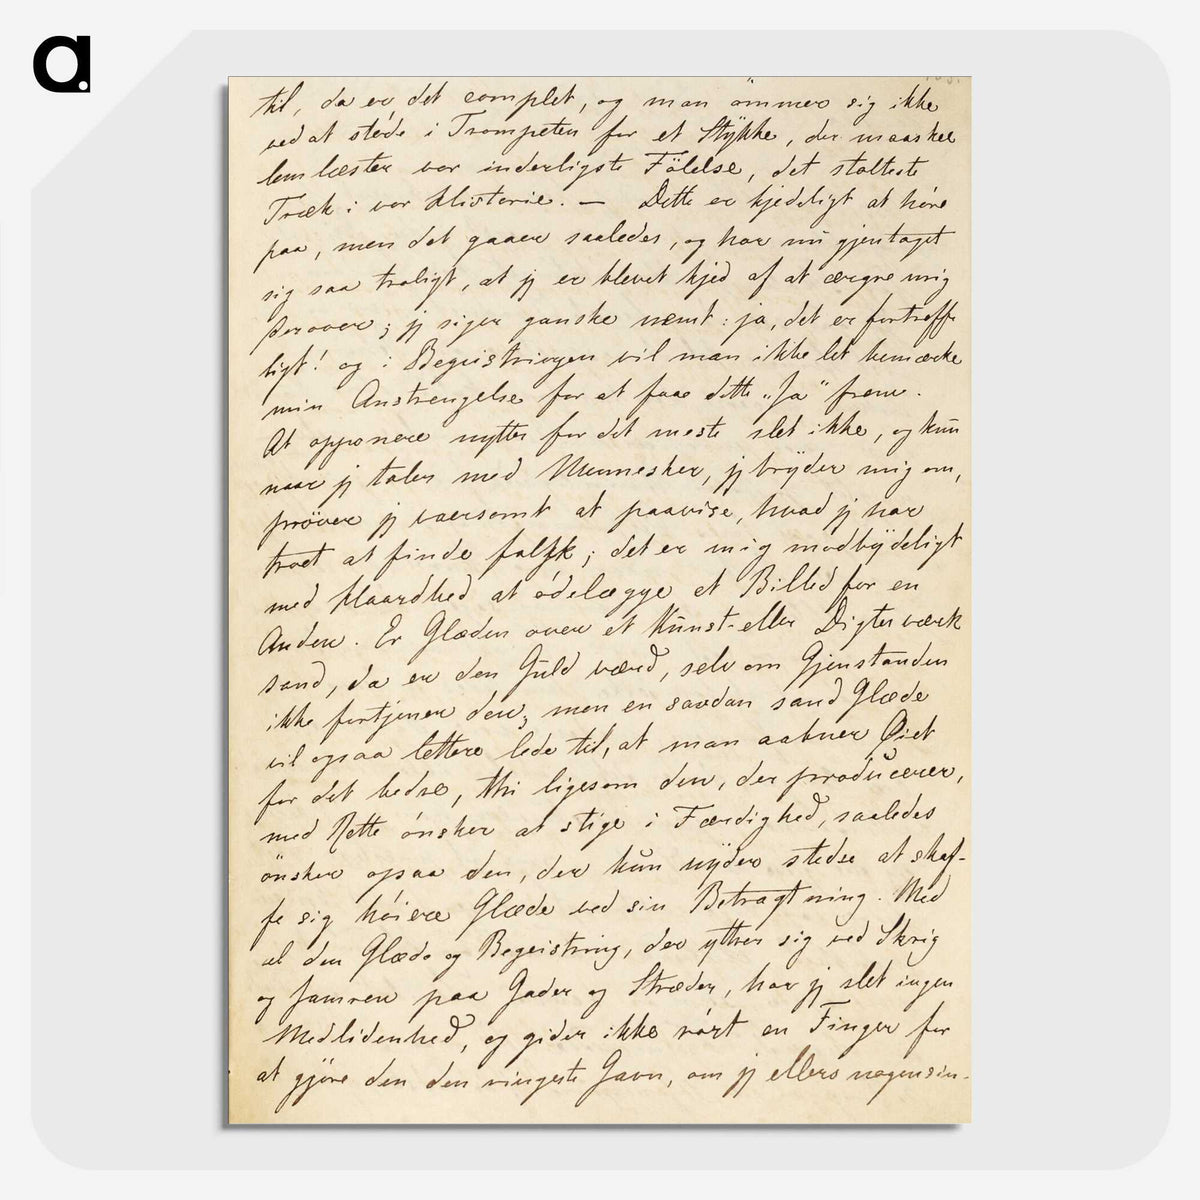 a.
til, da er det complet, og man ömmer sig ikke
ved at støde i Trompeten for et Stykke, der maaskee
lemlæster vor inderligste Fölelse, det stolteste
Træk i vor Historie. — Dette er kjedeligt at høre
paa, men det gaaer saaledes, og har nu gjentaget
sig saa troligt, at jeg er blevet kjed af at ærgre mig
derover; jeg siger ganske nemt: ja, det er fortreffe
ligt! og i Begeistringen vil man ikke let bemærke
min Anstrengelse for at faae dette „Ja" frem.
At opponere nytter for det meste slet ikke, og kun
naar jeg taler med Mennesker, jeg bryder mig om,
prøver jeg varsomt at paavise, hvad jeg har
troet at finde falsk; det er mig modbydeligt
med Haardhed at ödelægge et Billed for en
Anden. Er Glæden over et Kunst- eller Digterværk
sand, da er den Guld værd, selv om Gjenstanden
ikke fortjener den; men en saadan sand Glæde
vil ogsaa lettere lede til, at man aabner Øiet
for det bedre, thi ligesom den, der producerer,
med Rette önsker at stige i Færdighed, saaledes
önsker ogsaa den, der kun nyder stedse at skaf-
fe sig höiere Glæde ved sin Betragtning. Med
al den Glæde og Begeistring, der yttrer sig ved Skrig
og Jamren paa Gader og Stræder, har jeg slet ingen
Medlidenhed, og gider ikke rört en Finger for
at gjöre den den ringeste Gavn, om jeg ellers nogensin-